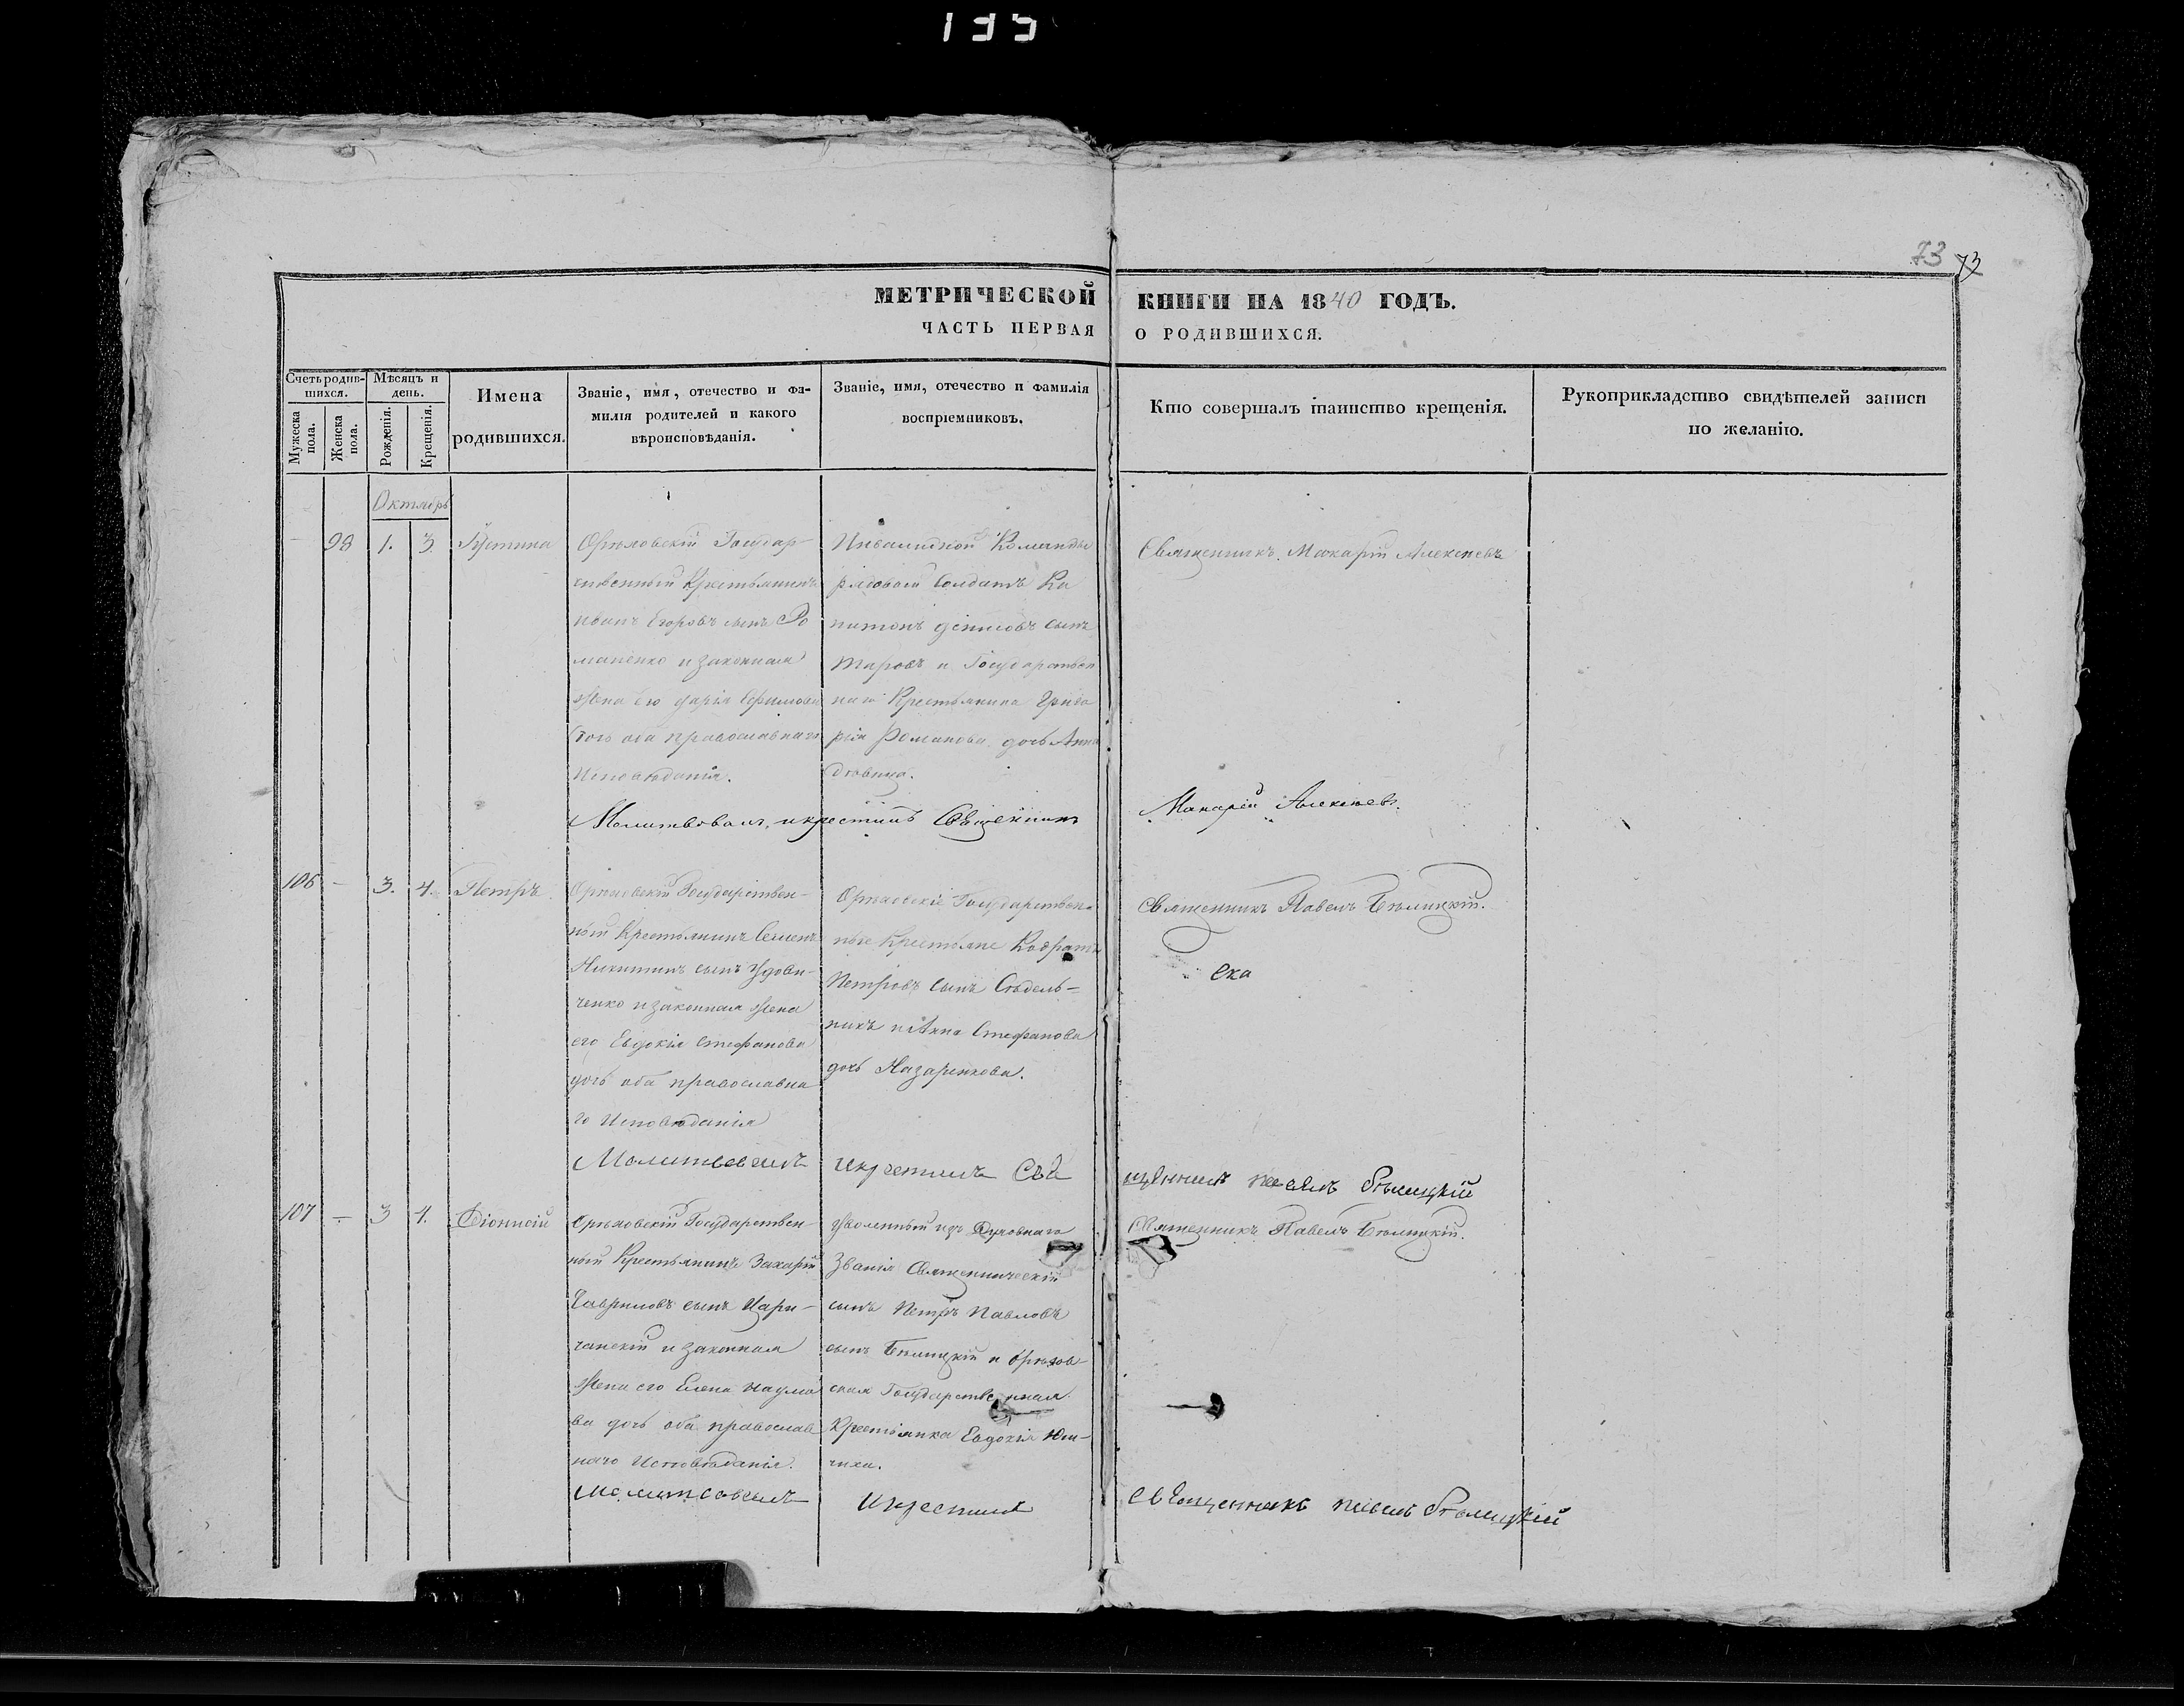 135
73 73
МЕТРИЧЕСКОЙ КНИГИ НА 1840 ГОДЪ.
ЧАСТЬ ПЕРВАЯ О РОДИВШИХСЯ.
Счетъ родив-
шихся.
Мужеска
пола.
Женска
пола.
Мѣсяцъ и
день.
Рожденія.
Крещенія.
Имена
родившихся.
Званіе, имя, отечество и фа-
милія родителей и какого
вѣроисповѣданія.
Званіе, имя, отечество и фамилія
воспріемниковъ.
Кто совершалъ таинство крещенія.
Рукоприкладство свидѣтелей записи
по желанію.
Октябрь
— 98 1. 3. Іустина
Орѣховскій Государ-
ственный Крестьянинъ
Иванъ Егоровъ сынъ Ро
маненко и законная
жена его Дарія Ефимова
дочь оба православнаго
Исповѣданія.
Инвалидной Команды
рядовой Солдатъ Ка
питонъ сынъ
и Государствен
наго Крестьянина Григо
рія Романова дочь Анна
дѣвица.
Священникъ Макарій Алексѣевъ
Молитвовалъ и крестилъ Священникъ Макарій Алексѣевъ.
106 — 3. 4. Петръ
Орѣховскій Государствен-
ный Крестьянинъ Семенъ
Никитинъ сынъ Удови-
ченко и законная жена
его Евдокія Стефанова
дочь оба православна
го Исповѣданія
Орѣховскіе Государствен-
ные Крестьяне Кодратъ
Петровъ сынъ Сѣдель-
никъ и Анна Стефанова
дочь Назаренкова.
Священникъ Павелъ Бѣлицкій.
ска
Молитвовалъ и крестилъ Свя
щенникъ Павелъ Бѣлицкій
107 — 3 4. Діонисій
Орѣховскій Государствен
ный Крестьянинъ Захарій
Гавриловъ сынъ Цари-
чанскій и законная
жена его Елена Наумо
ва дочь оба православ
наго Исповѣданія.
Уволенный изъ Духовнаго
Званія Священническій
сынъ Петръ Павловъ
сынъ Бѣлицкій и Орѣхов-
ская Государственная
Крестьянка Евдокія Юш-
чиха.
Священникъ Павелъ Бѣлицкій.
Молитвовалъ и крестилъ Священникъ Павелъ Бѣлицкій